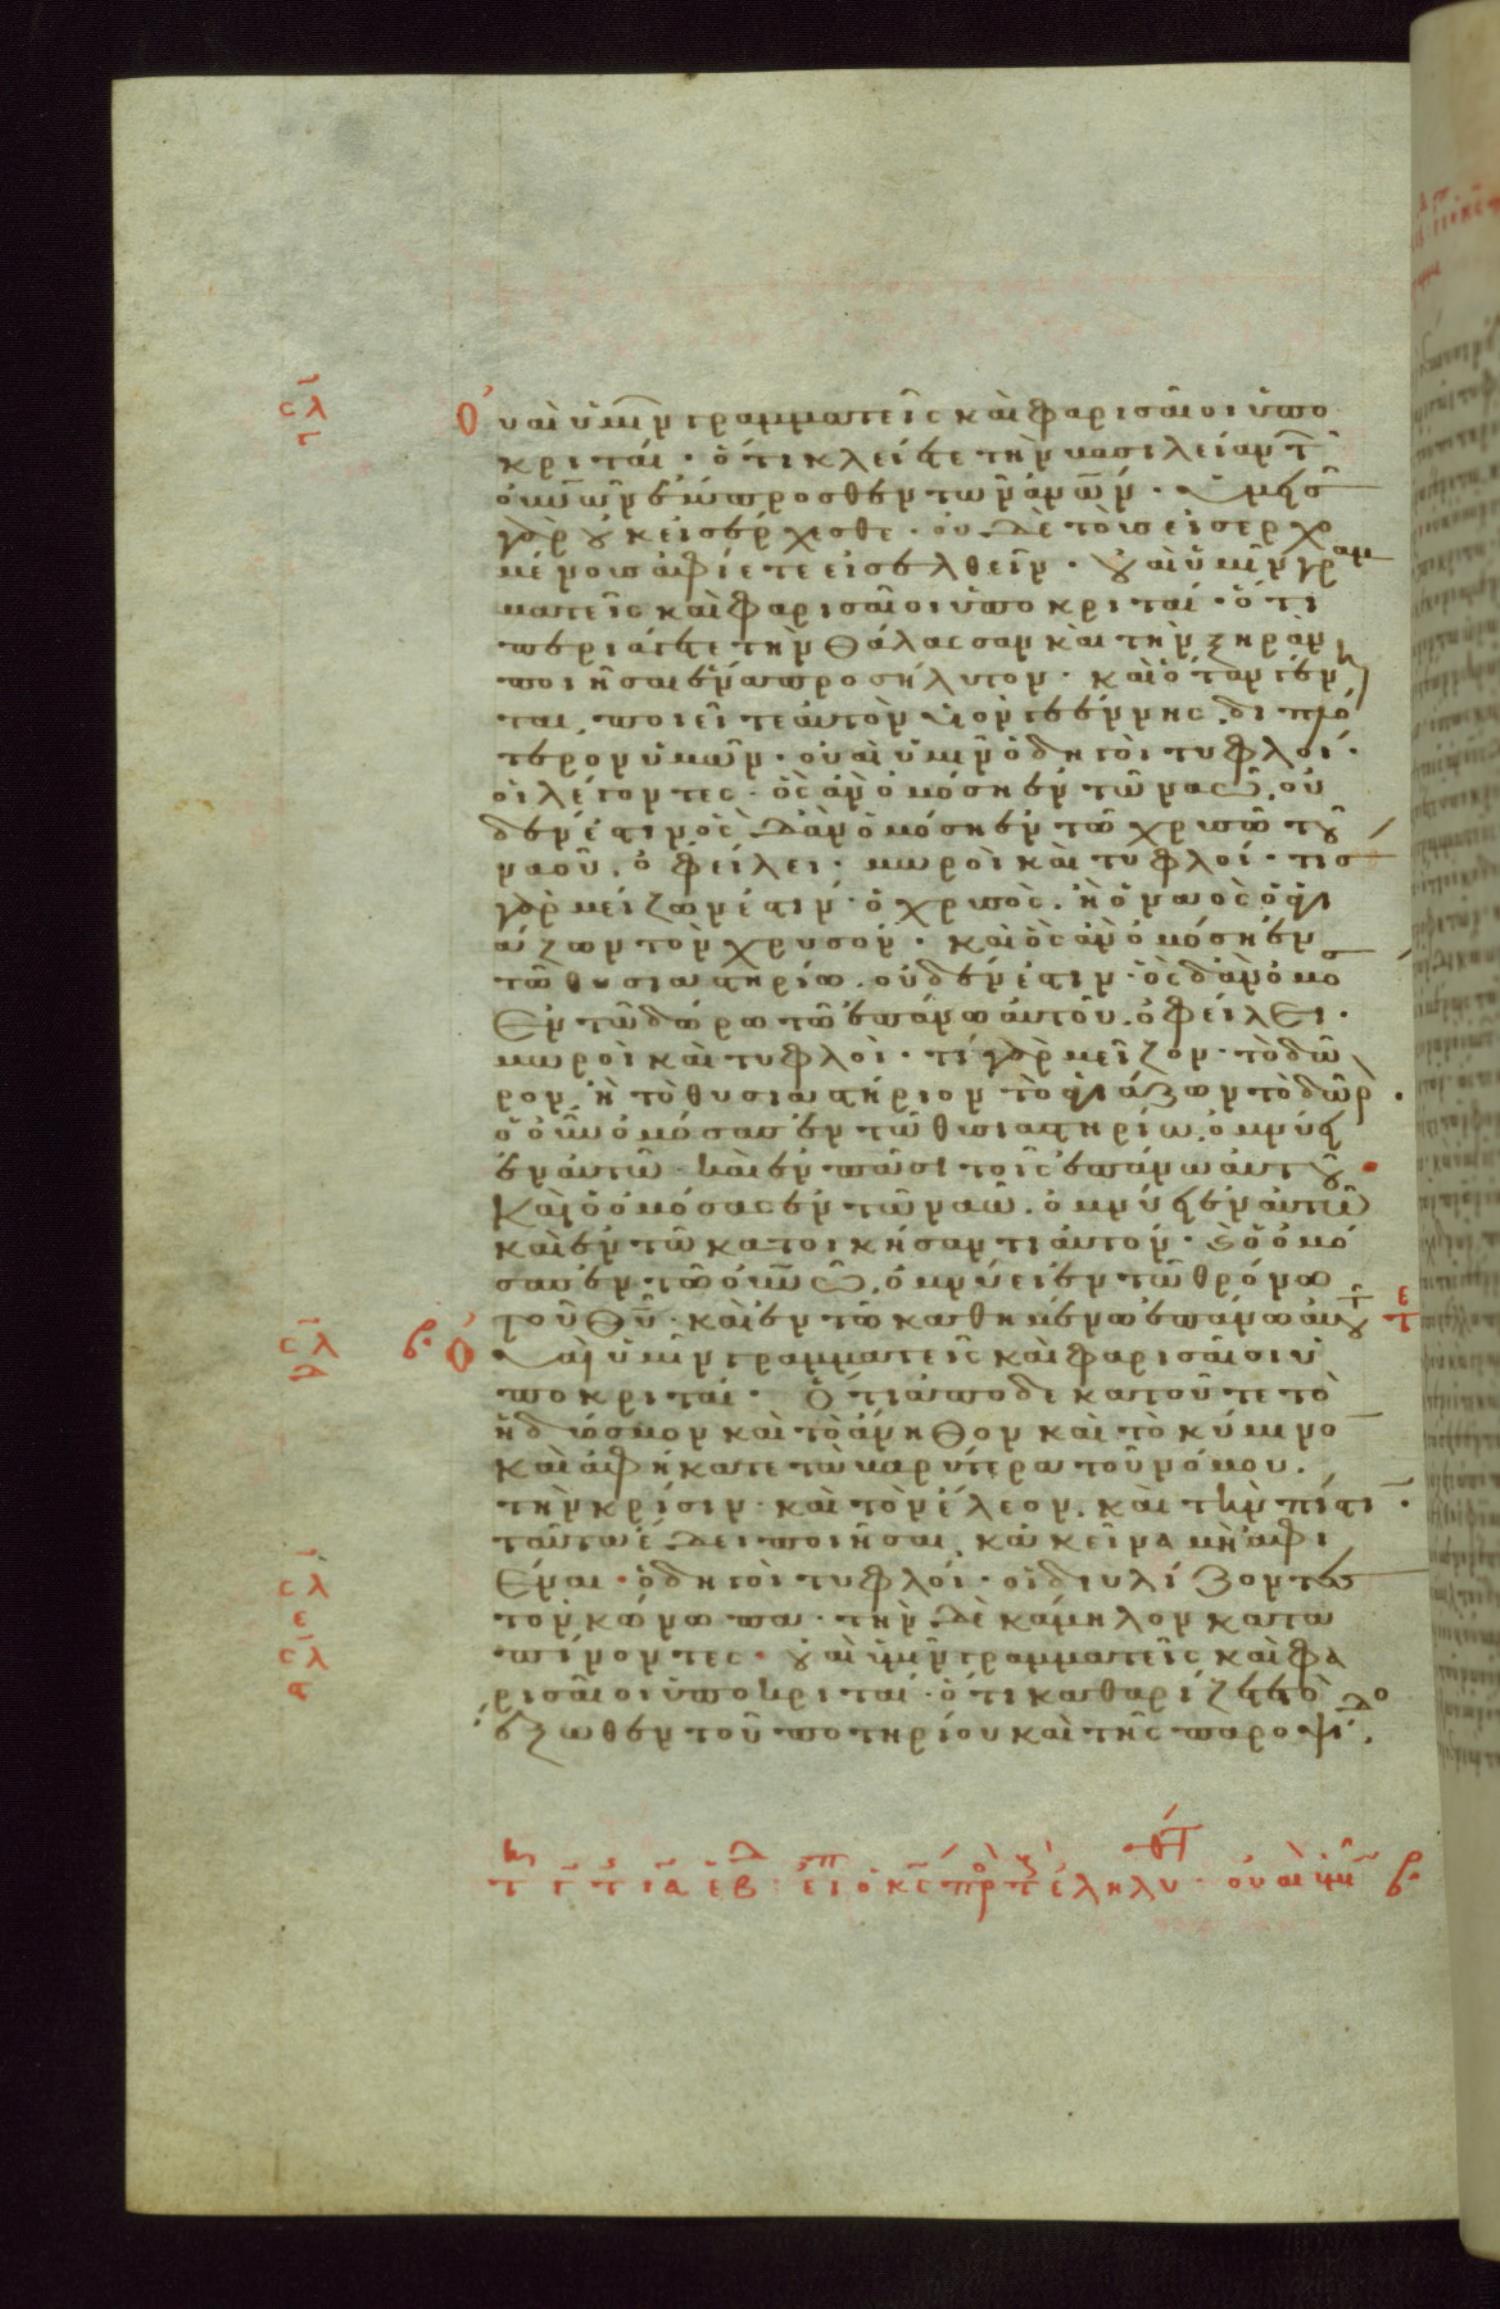 Ὀυαὶ ὑμῖν γραμματεῖς καὶ φαρισαῖοι ὑπο
κριταί · ὅτι κλείετε τὴν βασιλείαν τ
ὀυνῶν ἔμπροσθεν τῶν ἀνῶν · Ὑμεῖσ
γὰρ οὐκ εἰσέρχεσθε · οὐδὲ τοὺσ εἰσερχο
μένουσ ἀφίετε εἰσελθεῖν · Οὐαὶ ὑμῖν γραμ
ματεῖς καὶ φαρισαῖοι ὑποκριταί · ὅτι
περιάγετε τὴν θάλασσαν καὶ τὴν ξηρὰν
ποιῆσαι ἕνα προσήλυτον · καὶ ὅταν γένη
ται, ποιεῖτε ἀυτὸν υἱὸν γεέννης διπλό
τερον ὑμῶν · οὐαὶ ὑμῖν ὁδηγοὶ τυφλοί ·
οἱ λέγοντες · ὃς ἂν ὀμόση ἐν τῶ ναῶ, οὐ
δέν ἐστιν ὃς δ' ἂν ὀμόση ἐν τῶ χρυσῶ τοῦ
ναοῦ, ὀφείλει · μωροὶ καὶ τυφλοί · τισ
γὰρ μείζων ἐστιν · ὁ χρυσὸς, ἢ ὁ ναὸς ὁ ἁγι
άζων τὸν χρυσόν · καὶ ὃς ἂν ὀμόση ἐν
τῶ θυσιαστηρίω, οὐδέν ἐστιν · ὃς δ' ἂν ὀμο
ἐν τῶ δώρω τῶ ἐπάνω ἀυτοῦ, ὀφείλει ·
μωροὶ καὶ τυφλοὶ · τί γὰρ μεῖζον · τὸ δῶ
ρον, ἢ τὸ θυσιαστήριον τὸ ἁγιάζων τὸ δῶρ ·
ὁ οὖν ὀμόσασ ἐν τῶ θυσιαστηρίω, ὀμνύει
ἐν ἀυτῶ · καὶ ἐν πᾶσι τοῖς ἐπάνω ἀυτοῦ ·
Καὶ ὁ ὀμόσας ἐν τῶ ναῶ, ὀμνύει ἐν ἀυτῶ
καὶ ἐν τῶ κατοικήσαντι ἀυτόν · καὶ ὁ ὀμό
σασ ἐν τῶ ὀυνῶ, ὀμνύει ἐν τῶ θρόνω
τοῦ θυ · καὶ ἐν τῶ καθημένω ἐπάνω ἀυτοῦ
Ὀυαὶ ὑμῖν γραμματεῖς καὶ φαρισαῖοι ὑ
ποκριταί · Ὅτι ἀποδεκατοῦτε τὸ
ἡδύοσμον καὶ τὸ ἄνηθον καὶ τὸ κύμινο
καὶ ἀφήκατε τὰ βαρύτερα τοῦ νόμου.
τὴν κρίσιν · καὶ τὸν ἔλεον, καὶ τὴν πίστι ·
ταῦτα ἔδει ποιῆσαι, κἀκεῖνα μὴ ἀφι
έναι · ὁδηγοὶ τυφλοί · οἱ διυλίζοντεσ
τὸν κώνωπα · τὴν δὲ κάμηλον κατα
πίνοντες · οὐαὶ ὑμῖν γραμματεῖς καὶ φα
ρισαῖοι ὑποκριταί · ὅτι καθαρίζετε τὸ
ἔξωθεν τοῦ ποτηρίου καὶ τῆς παροψίδο